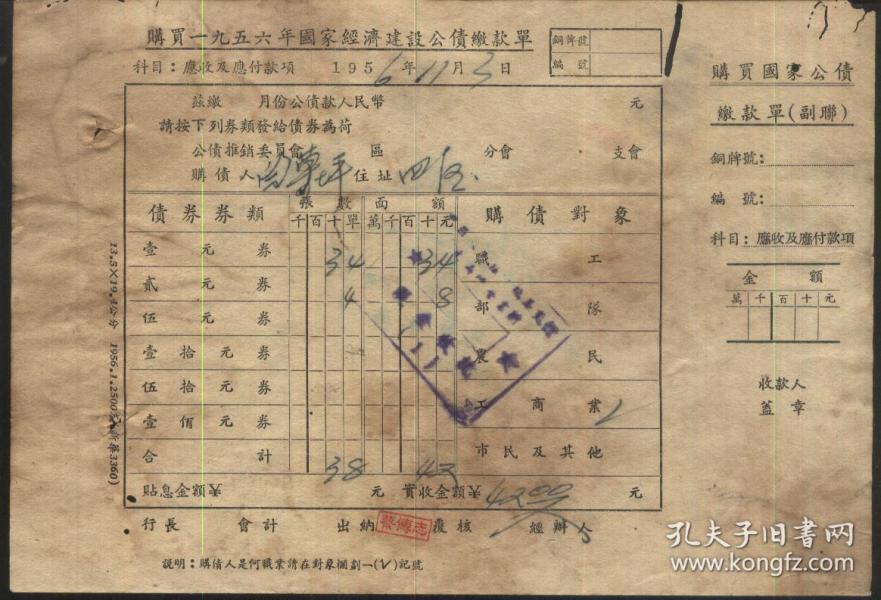 購買一九五六年國家經濟建設公債繳款單
銅牌號
編號
科目：應收及應付款項 1956年11月3日
茲繳 月份公債款人民幣 元
請按下列券類發給債券為荷
公債推銷委員會 區 分會 支會
購債人 住址
債券券類 張數 面額 購債對象
千百十單 萬千百十元
壹元券 34 34 職工
貳元券 4 8 部隊
伍元券
壹拾元券 農民
伍拾元券
壹佰元券 工商業 √
合計 38 42 市民及其他
貼息金額 元 實收金額 4200 元
行長 會計 出納 蔡傳志 覆核 經辦
說明：購債人是何職業請在對象欄劃一(√)記號
13.5×19.4公分 1956.1.2500
購買國家公債
繳款單(副聯)
銅牌號：
編號：
科目：應收及應付款項
金額
萬千百十元
收款人
蓋章
孔夫子旧书网
www.kongfz.com